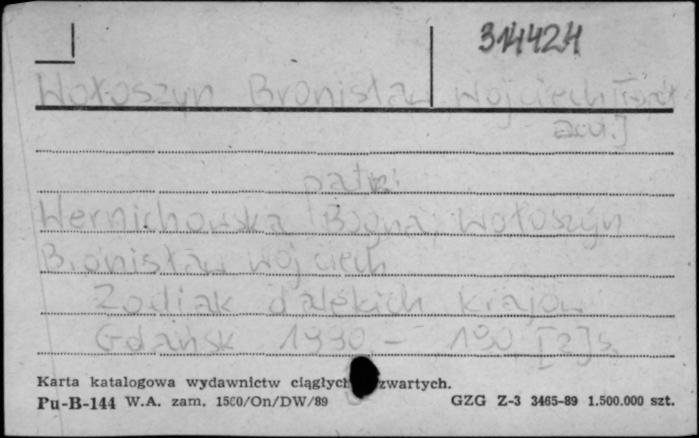 314424
Wołoszyn Bronisław Wojciech
patrz:
Wernichowska Bogna, Wołoszyn
Bronisław Wojciech
Zodiak dalekich krajów
Gdańsk 1990 - 190 [2] s.
Karta katalogowa wydawnictw ciągłych zwartych.
Pu-B-144 W.A. zam. 1560/On/DW/89 GZG Z-3 3465-89 1.500.000 szt.